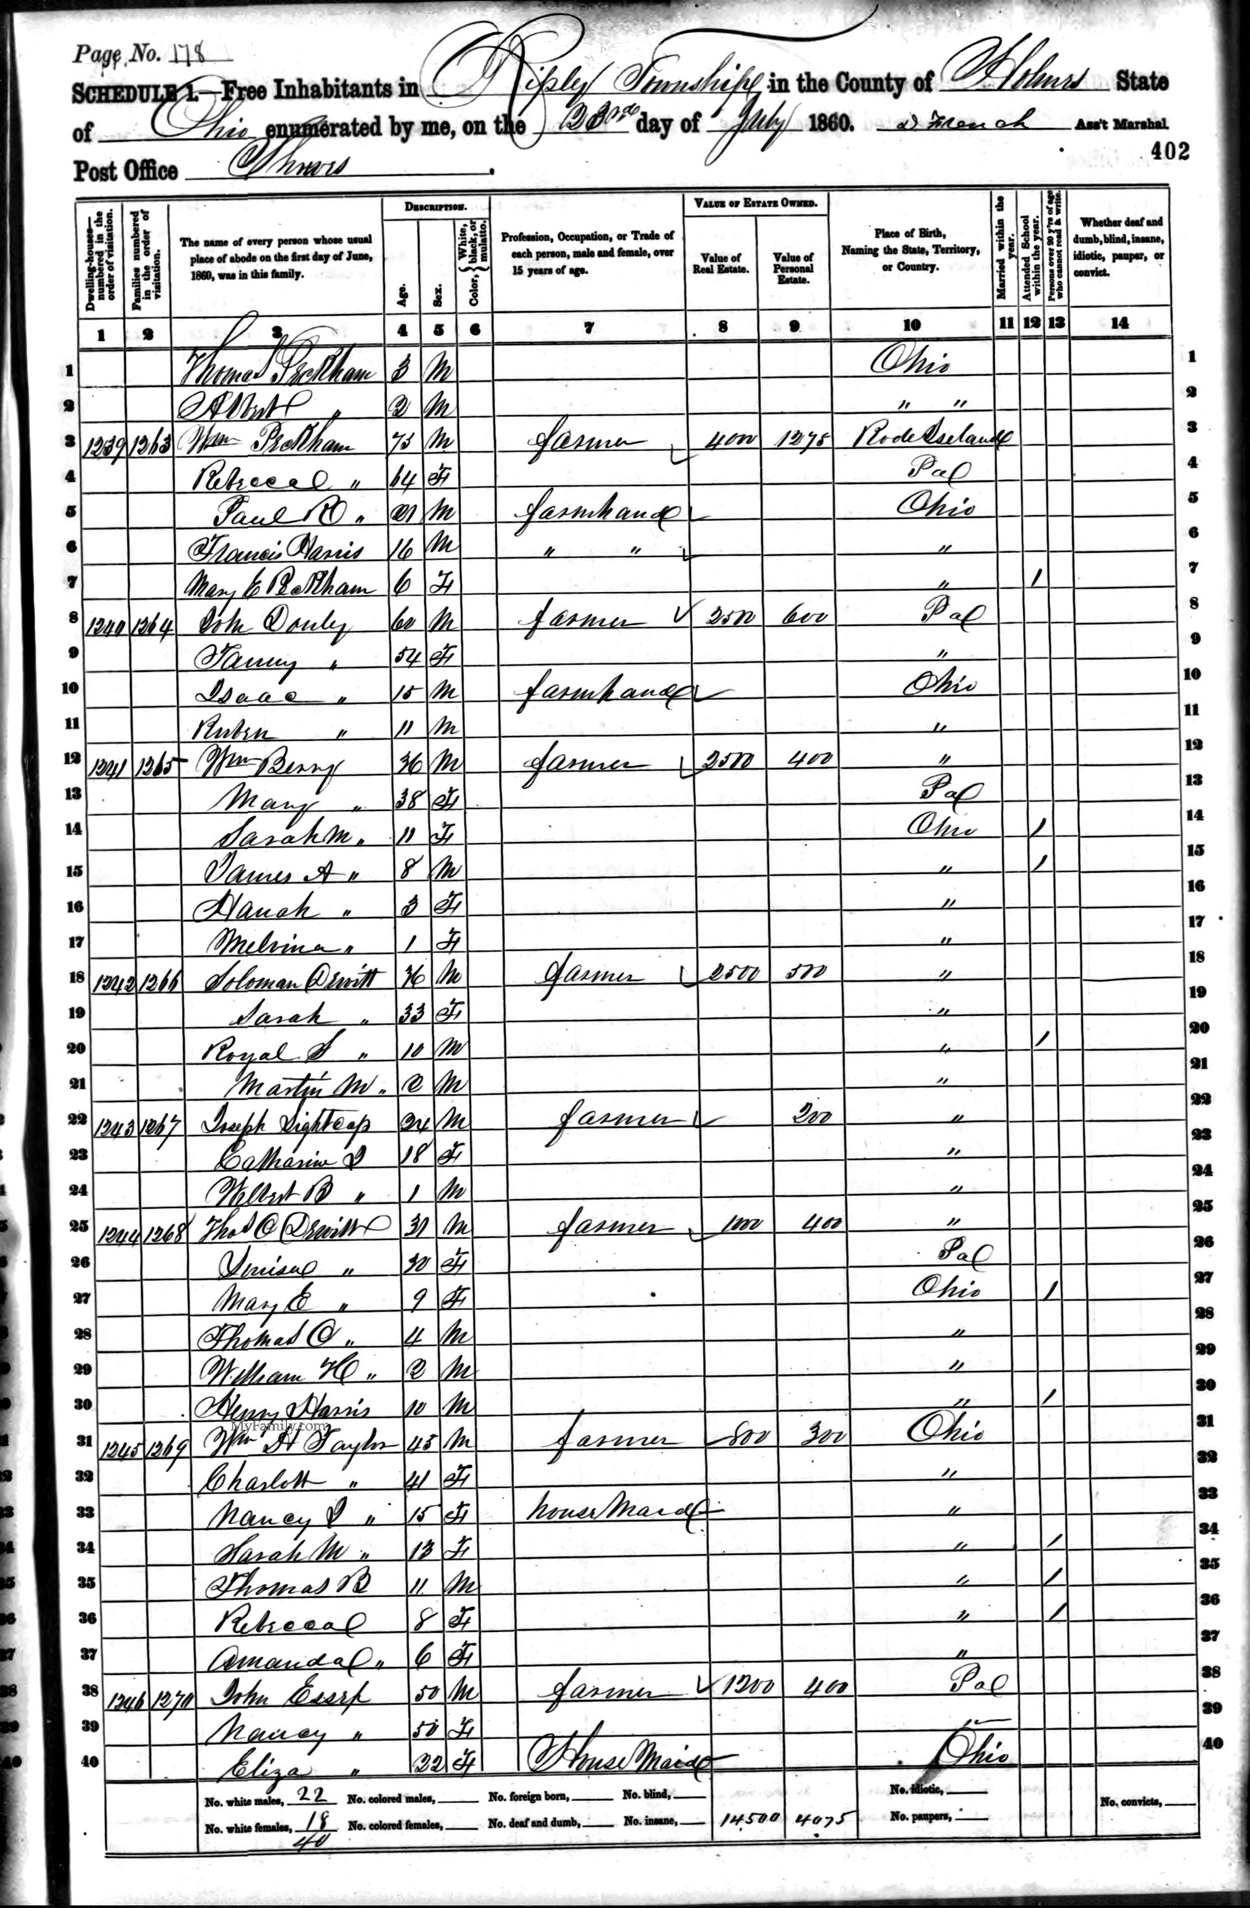 Page No. 178
SCHEDULE 1.—Free Inhabitants in Ripley Township in the County of Holmes State
of Ohio enumerated by me, on the 23rd day of July 1860. D French Ass't Marshal.
402
Post Office Shreves.
Dwelling-houses—numbered in the order of visitation. Families numbered in the order of visitation. The name of every person whose usual place of abode on the first day of June, 1860, was in this family. DESCRIPTION. Age. Sex. Color, White, black, or mulatto. Profession, Occupation, or Trade of each person, male and female, over 15 years of age. VALUE OF ESTATE OWNED. Value of Real Estate. Value of Personal Estate. Place of Birth, Naming the State, Territory, or Country. Married within the year. Attended School within the year. Persons over 20 y'rs of age who cannot read & write. Whether deaf and dumb, blind, insane, idiotic, pauper, or convict.
1 2 3 4 5 6 7 8 9 10 11 12 13 14
1 Thomas Peckham 3 M Ohio 1
2 Albert " 2 M " " 2
3 1239 1263 Wm Peckham 75 M farmer 4000 1275 Rode Iseland 3
4 Rebecca " 64 F Pa 4
5 Paul R " 21 M farmhand Ohio 5
6 Francis Harris 16 M " " " 6
7 Mary E Peckham 6 F " / 7
8 1240 1264 John Donly 60 M farmer 2500 600 Pa 8
9 Fanny " 54 F " 9
10 Isaac " 15 M farmhand Ohio 10
11 Ruben " 11 M " 11
12 1241 1265 Wm Berry 36 M farmer 2500 400 " 12
13 Mary " 38 F Pa 13
14 Sarah M " 11 F Ohio / 14
15 James A " 8 M " / 15
16 Hanah " 3 F " 16
17 Melvina " 1 F " 17
18 1242 1266 Soloman Dewitt 36 M farmer 2500 500 " 18
19 Sarah " 33 F " 19
20 Royal S " 10 M " / 20
21 Martin M " 2 M " 21
22 1243 1267 Joseph Lightcap 24 M farmer 200 " 22
23 Catharine 18 F " 23
24 Wilbert B " 1 M " 24
25 1244 1268 Thos C Dewitt 31 M farmer 1000 400 " 25
26 " 30 F Pa 26
27 Mary E " 9 F Ohio / 27
28 Thomas C " 4 M " 28
29 William H " 2 M " 29
30 Henry Harris 10 M " / 30
MyFamily.com
31 1245 1269 Wm H Taylor 45 M farmer 800 300 Ohio 31
32 Charlott " 41 F " 32
33 Nancy J " 15 F house Maid " 33
34 Sarah M " 13 F " / 34
35 Thomas B 11 M " / 35
36 Rebecca 8 F " / 36
37 Amanda " 6 F " 37
38 1246 1270 John Essep 50 M farmer 1200 400 Pa 38
39 Nancy " 50 F " 39
40 Eliza " 22 F House Maid Ohio 40
No. white males, 22 No. colored males, No. foreign born, No. blind, No. idiotic,
No. white females, 18 No. colored females, No. deaf and dumb, No. insane, 14500 4075 No. paupers, No. convicts,
40